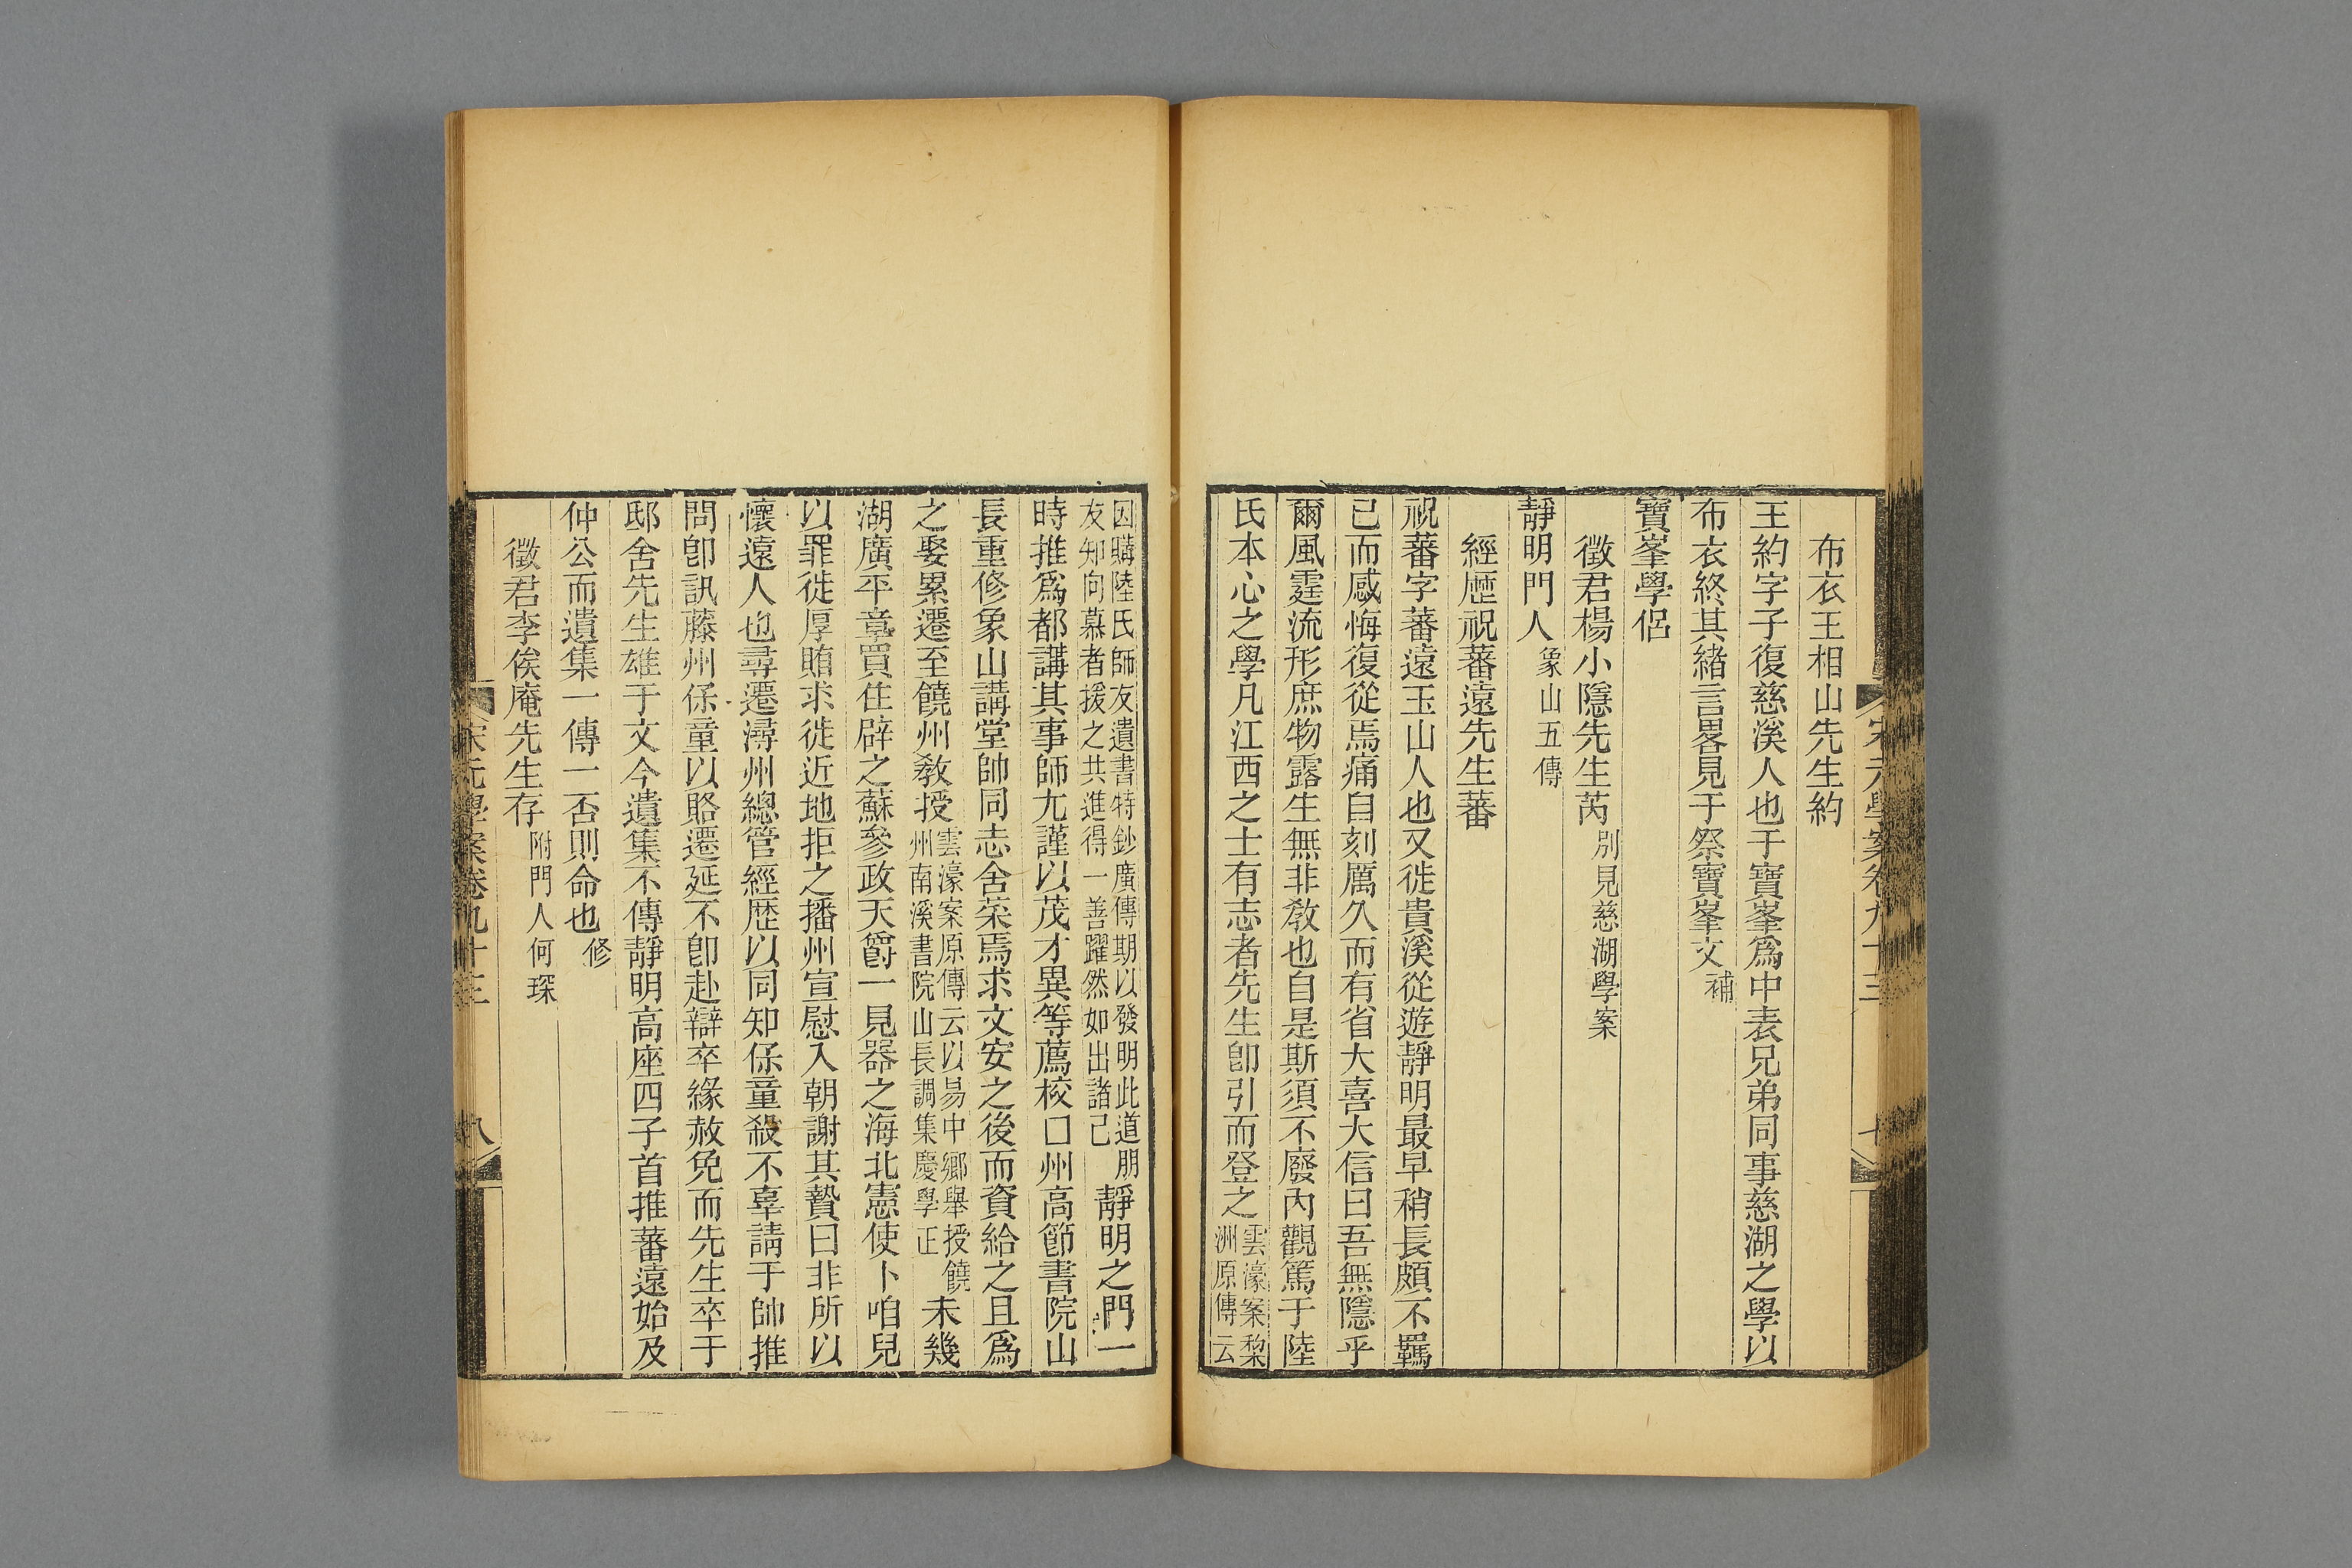 布衣王相山先生約
王約字子復慈溪人也于寶峯爲中表兄弟同事慈湖之學以
布衣終其緒言畧見于祭寶峯文補
寶峯學侶
徵君楊小隱先生芮別見慈湖學案
靜明門人象山五傳
經歷祝蕃遠先生蕃
祝蕃字蕃遠玉山人也又徙貴溪從遊靜明最早稍長頗不羈
已而感悔復從焉痛自刻厲久而有省大喜大信曰吾無隱乎
爾風霆流形庶物露生無非敎也自是斯須不廢內觀篤于陸
氏本心之學凡江西之士有志者先生卽引而登之雲濠案棃
洲原傳云
宋元學案卷九十三
七
因購陸氏師友遺書特鈔廣傳期以發明此道朋
友知向慕者援之共進得一善躍然如出諸己靜明之門一
時推爲都講其事師尤謹以茂才異等薦校囗州高節書院山
長重修象山講堂帥同志舍菜焉求文安之後而資給之且爲
之娶累遷至饒州敎授雲濠案原傳云以易中鄉舉授饒
州南溪書院山長調集慶學正未幾
湖廣平章買住辟之蘇參政天爵一見器之海北憲使卜咱兒
以罪徙厚賄求徙近地拒之播州宣慰入朝謝其贄曰非所以
懷遠人也尋遷潯州總管經歴以同知保童殺不辜請于帥推
問卽訊藤州保童以賂遷延不卽赴辯卒緣赦免而先生卒于
邸舍先生雄于文今遺集不傳靜明高座四子首推蕃遠始及
仲公而遺集一傳一否則命也修
徵君李俟庵先生存附門人何琛
宋元學案卷九十三
八